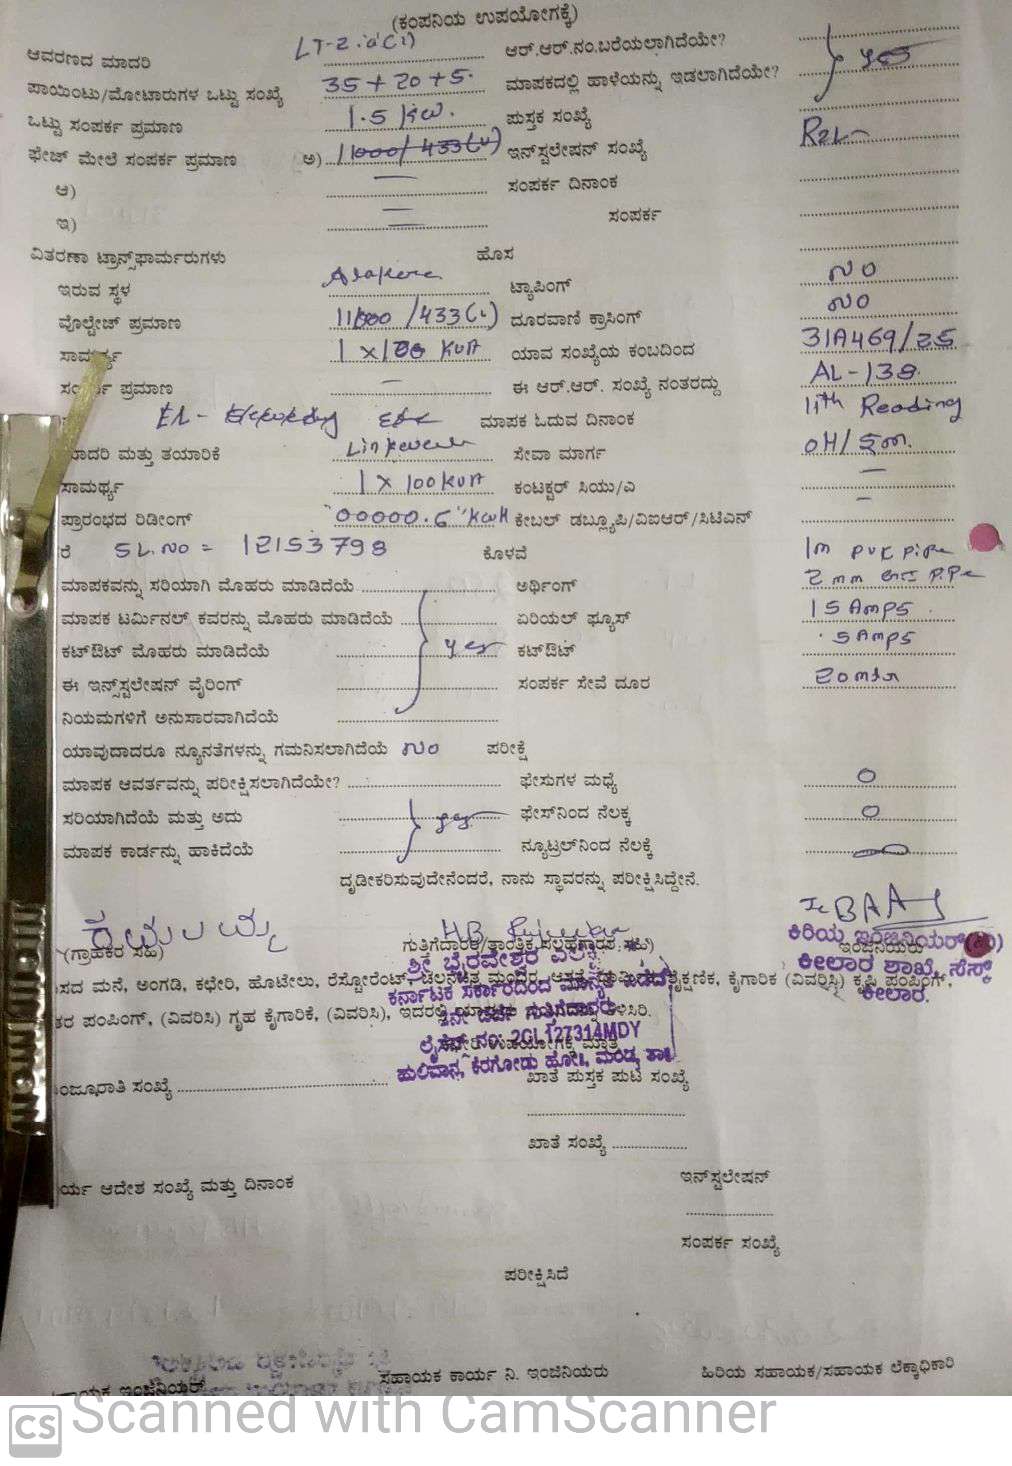 (ಕಂಪನಿಯ ಉಪಯೋಗಕ್ಕೆ)
ಆವರಣದ ಮಾದರಿ LT-2 ಆರ್.ಆರ್.ನಂ.ಬರೆಯಲಾಗಿದೆಯೇ?
ಪಾಯಿಂಟು/ಮೋಟಾರುಗಳ ಒಟ್ಟು ಸಂಖ್ಯೆ 35+20+5. ಮಾಪಕದಲ್ಲಿ ಹಾಳೆಯನ್ನು ಇಡಲಾಗಿದೆಯೇ? yes
ಒಟ್ಟು ಸಂಪರ್ಕ ಪ್ರಮಾಣ 1.5 KW. ಪುಸ್ತಕ ಸಂಖ್ಯೆ
ಫೇಜ್ ಮೇಲೆ ಸಂಪರ್ಕ ಪ್ರಮಾಣ ಅ) 11000/433(V) ಇನ್‌ಸ್ಟಲೇಷನ್ ಸಂಖ್ಯೆ
ಆ) ಸಂಪರ್ಕ ದಿನಾಂಕ
ಇ) ಸಂಪರ್ಕ
ವಿತರಣಾ ಟ್ರಾನ್ಸ್‌ಫಾರ್ಮರುಗಳು ಹೊಸ
ಇರುವ ಸ್ಥಳ Alakere ಟ್ಯಾಪಿಂಗ್ NO
ವೊಲ್ಟೇಜ್ ಪ್ರಮಾಣ 11000/433(V) ದೂರವಾಣಿ ಕ್ರಾಸಿಂಗ್ NO
ಸಾಮರ್ಥ್ಯ 1x100 KVA ಯಾವ ಸಂಖ್ಯೆಯ ಕಂಬದಿಂದ 31A469/25
ಸಂಪರ್ಕ ಪ್ರಮಾಣ — ಈ ಆರ್.ಆರ್. ಸಂಖ್ಯೆ ನಂತರದ್ದು AL-138
ಮಾಪಕ ಓದುವ ದಿನಾಂಕ 11th Reading
ಮಾದರಿ ಮತ್ತು ತಯಾರಿಕೆ ಸೇವಾ ಮಾರ್ಗ
ಸಾಮರ್ಥ್ಯ 1 x 100 KVA ಕಂಟಕ್ಟರ್ ಸಿಯು/ಎ —
ಪ್ರಾರಂಭದ ರಿಡೀಂಗ್ "00000.6" KWH ಕೇಬಲ್ ಡಬ್ಲ್ಯೂಪಿ/ವಿಐಆರ್/ಸಿಟಿಎನ್
ರೆ SL.NO = 12153798 ಕೊಳವೆ 1m PVC pipe
ಮಾಪಕವನ್ನು ಸರಿಯಾಗಿ ಮೊಹರು ಮಾಡಿದೆಯೆ ಅರ್ಥಿಂಗ್ 2mm
ಮಾಪಕ ಟರ್ಮಿನಲ್ ಕವರನ್ನು ಮೊಹರು ಮಾಡಿದೆಯೆ ಏರಿಯಲ್ ಫ್ಯೂಸ್ 15 Amps.
ಕಟ್‌ಔಟ್ ಮೊಹರು ಮಾಡಿದೆಯೆ yes ಕಟ್‌ಔಟ್ 5 Amps
ಈ ಇನ್‌ಸ್ಟಲೇಷನ್ ವೈರಿಂಗ್ ಸಂಪರ್ಕ ಸೇವೆ ದೂರ 20 mtr
ನಿಯಮಗಳಿಗೆ ಅನುಸಾರವಾಗಿದೆಯೆ
ಯಾವುದಾದರೂ ನ್ಯೂನತೆಗಳನ್ನು ಗಮನಿಸಲಾಗಿದೆಯೆ NO ಪರೀಕ್ಷೆ
ಮಾಪಕ ಆವರ್ತವನ್ನು ಪರೀಕ್ಷಿಸಲಾಗಿದೆಯೇ? ಫೇಸುಗಳ ಮಧ್ಯೆ 0
ಸರಿಯಾಗಿದೆಯೆ ಮತ್ತು ಅದು yes ಫೇಸ್‌ನಿಂದ ನೆಲಕ್ಕೆ 0
ಮಾಪಕ ಕಾರ್ಡನ್ನು ಹಾಕಿದೆಯೆ ನ್ಯೂಟ್ರಲ್‌ನಿಂದ ನೆಲಕ್ಕೆ 0
ದೃಡೀಕರಿಸುವುದೇನೆಂದರೆ, ನಾನು ಸ್ಥಾವರನ್ನು ಪರೀಕ್ಷಿಸಿದ್ದೇನೆ.
(ಗ್ರಾಹಕರ ಸಹಿ) ಗುತಿಗೆದಾರರ/ತಾಂತ್ರಿಕ ಸಲಹಗಾರರ ಸಹಿ) ಇಂಜಿನಿಯರು
ಕಿರಿಯ ಇಂಜಿನಿಯರ್(ವಿ)
ಕೀಲಾರ ಶಾಖೆ, ಸೆಸ್ಕ್
ಕೀಲಾರ.
ಶ್ರೀ ಭೈರವೇಶ್ವರ
ಕರ್ನಾಟಕ ಸರ್ಕಾರದಿಂದ ಮಾನ್ಯತೆ ಪಡೆದ
ಗುತ್ತಿಗೆದಾರರು
ಲೈಸೆನ್ಸ್ ನಂ: 2GL127314MDY
ಹುಲಿವಾನ, ಕೆರಗೋಡು ಹೋ।, ಮಂಡ್ಯ ತಾ॥
ಸದ ಮನೆ, ಅಂಗಡಿ, ಕಛೇರಿ, ಹೊಟೇಲು, ರೆಸ್ಟೋರೆಂಟ್, ಚಲನಚಿತ್ರ ಮಂದಿರ, ಆಸ್ಪತ್ರೆ ಶೈಕ್ಷಣಿಕ, ಕೈಗಾರಿಕ (ವಿವರಿಸಿ) ಕೃಷಿ ಪಂಪಿಂಗ್,
ತರ ಪಂಪಿಂಗ್, (ವಿವರಿಸಿ) ಗೃಹ ಕೈಗಾರಿಕೆ, (ವಿವರಿಸಿ), ಇದರಲ್ಲಿ ತಿಳಿಸಿರಿ.
ಕಛೇರಿ ಉಪಯೋಗಕ್ಕೆ ಮಾತ್ರ
ಂಜೂರಾತಿ ಸಂಖ್ಯೆ ಖಾತೆ ಪುಸ್ತಕ ಪುಟ ಸಂಖ್ಯೆ
ಖಾತೆ ಸಂಖ್ಯೆ
ರ್ಯ ಆದೇಶ ಸಂಖ್ಯೆ ಮತ್ತು ದಿನಾಂಕ ಇನ್‌ಸ್ಟಲೇಷನ್
ಸಂಪರ್ಕ ಸಂಖ್ಯೆ
ಪರೀಕ್ಷಿಸಿದೆ
ಸಹಾಯಕ ಇಂಜಿನಿಯರ್ ಸಹಾಯಕ ಕಾರ್ಯ ನಿ. ಇಂಜಿನಿಯರು ಹಿರಿಯ ಸಹಾಯಕ/ಸಹಾಯಕ ಲೆಕ್ಕಾಧಿಕಾರಿ
CS Scanned with CamScanner